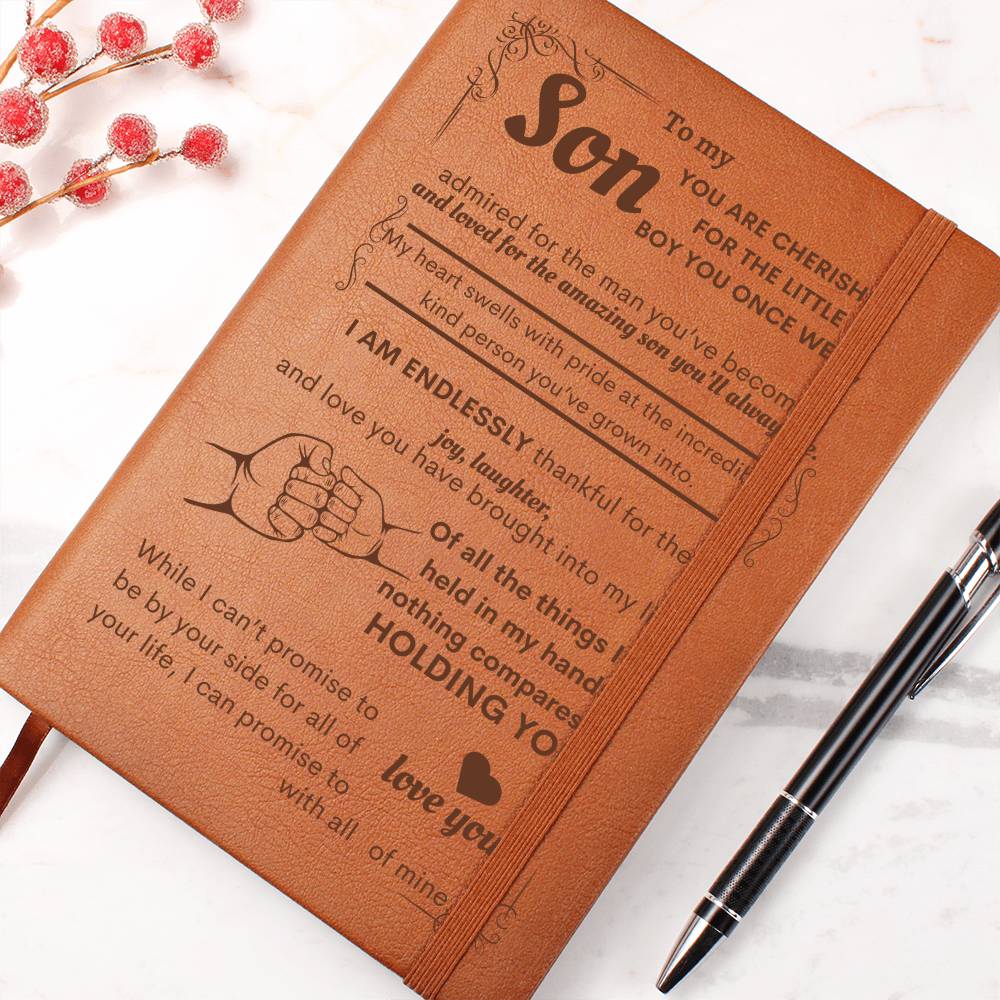 To my
Son
YOU ARE CHERISH
FOR THE LITTLE
BOY YOU ONCE WE
admired for the man you've becom
and loved for the amazing son you'll alway
My heart swells with pride at the incredi
kind person you've grown into.
I AM ENDLESSLY thankful for the
joy, laughter,
and love you have brought into my l
Of all the things I
held in my hand
nothing compares
HOLDING YO
While I can't promise to
be by your side for all of
your life, I can promise to
love you
with all
of mine